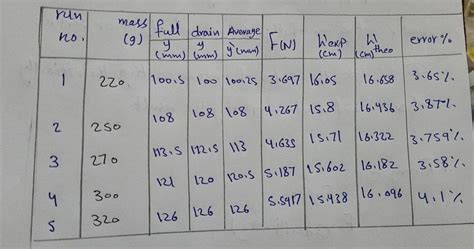 run no. mass (g) full y (mm) drain y (mm) Average y (mm) F(N) h'exp (cm) h' theo (cm) error %
1 220 100.5 100 100.25 3.697 16.05 16.658 3.65%
2 250 108 108 108 4.267 15.8 16.436 3.87%
3 270 113.5 112.5 113 4.635 15.71 16.322 3.759%
4 300 121 120 120.5 5.187 15.602 16.182 3.58%
5 320 126 126 126 5.5917 15.438 16.096 4.1%